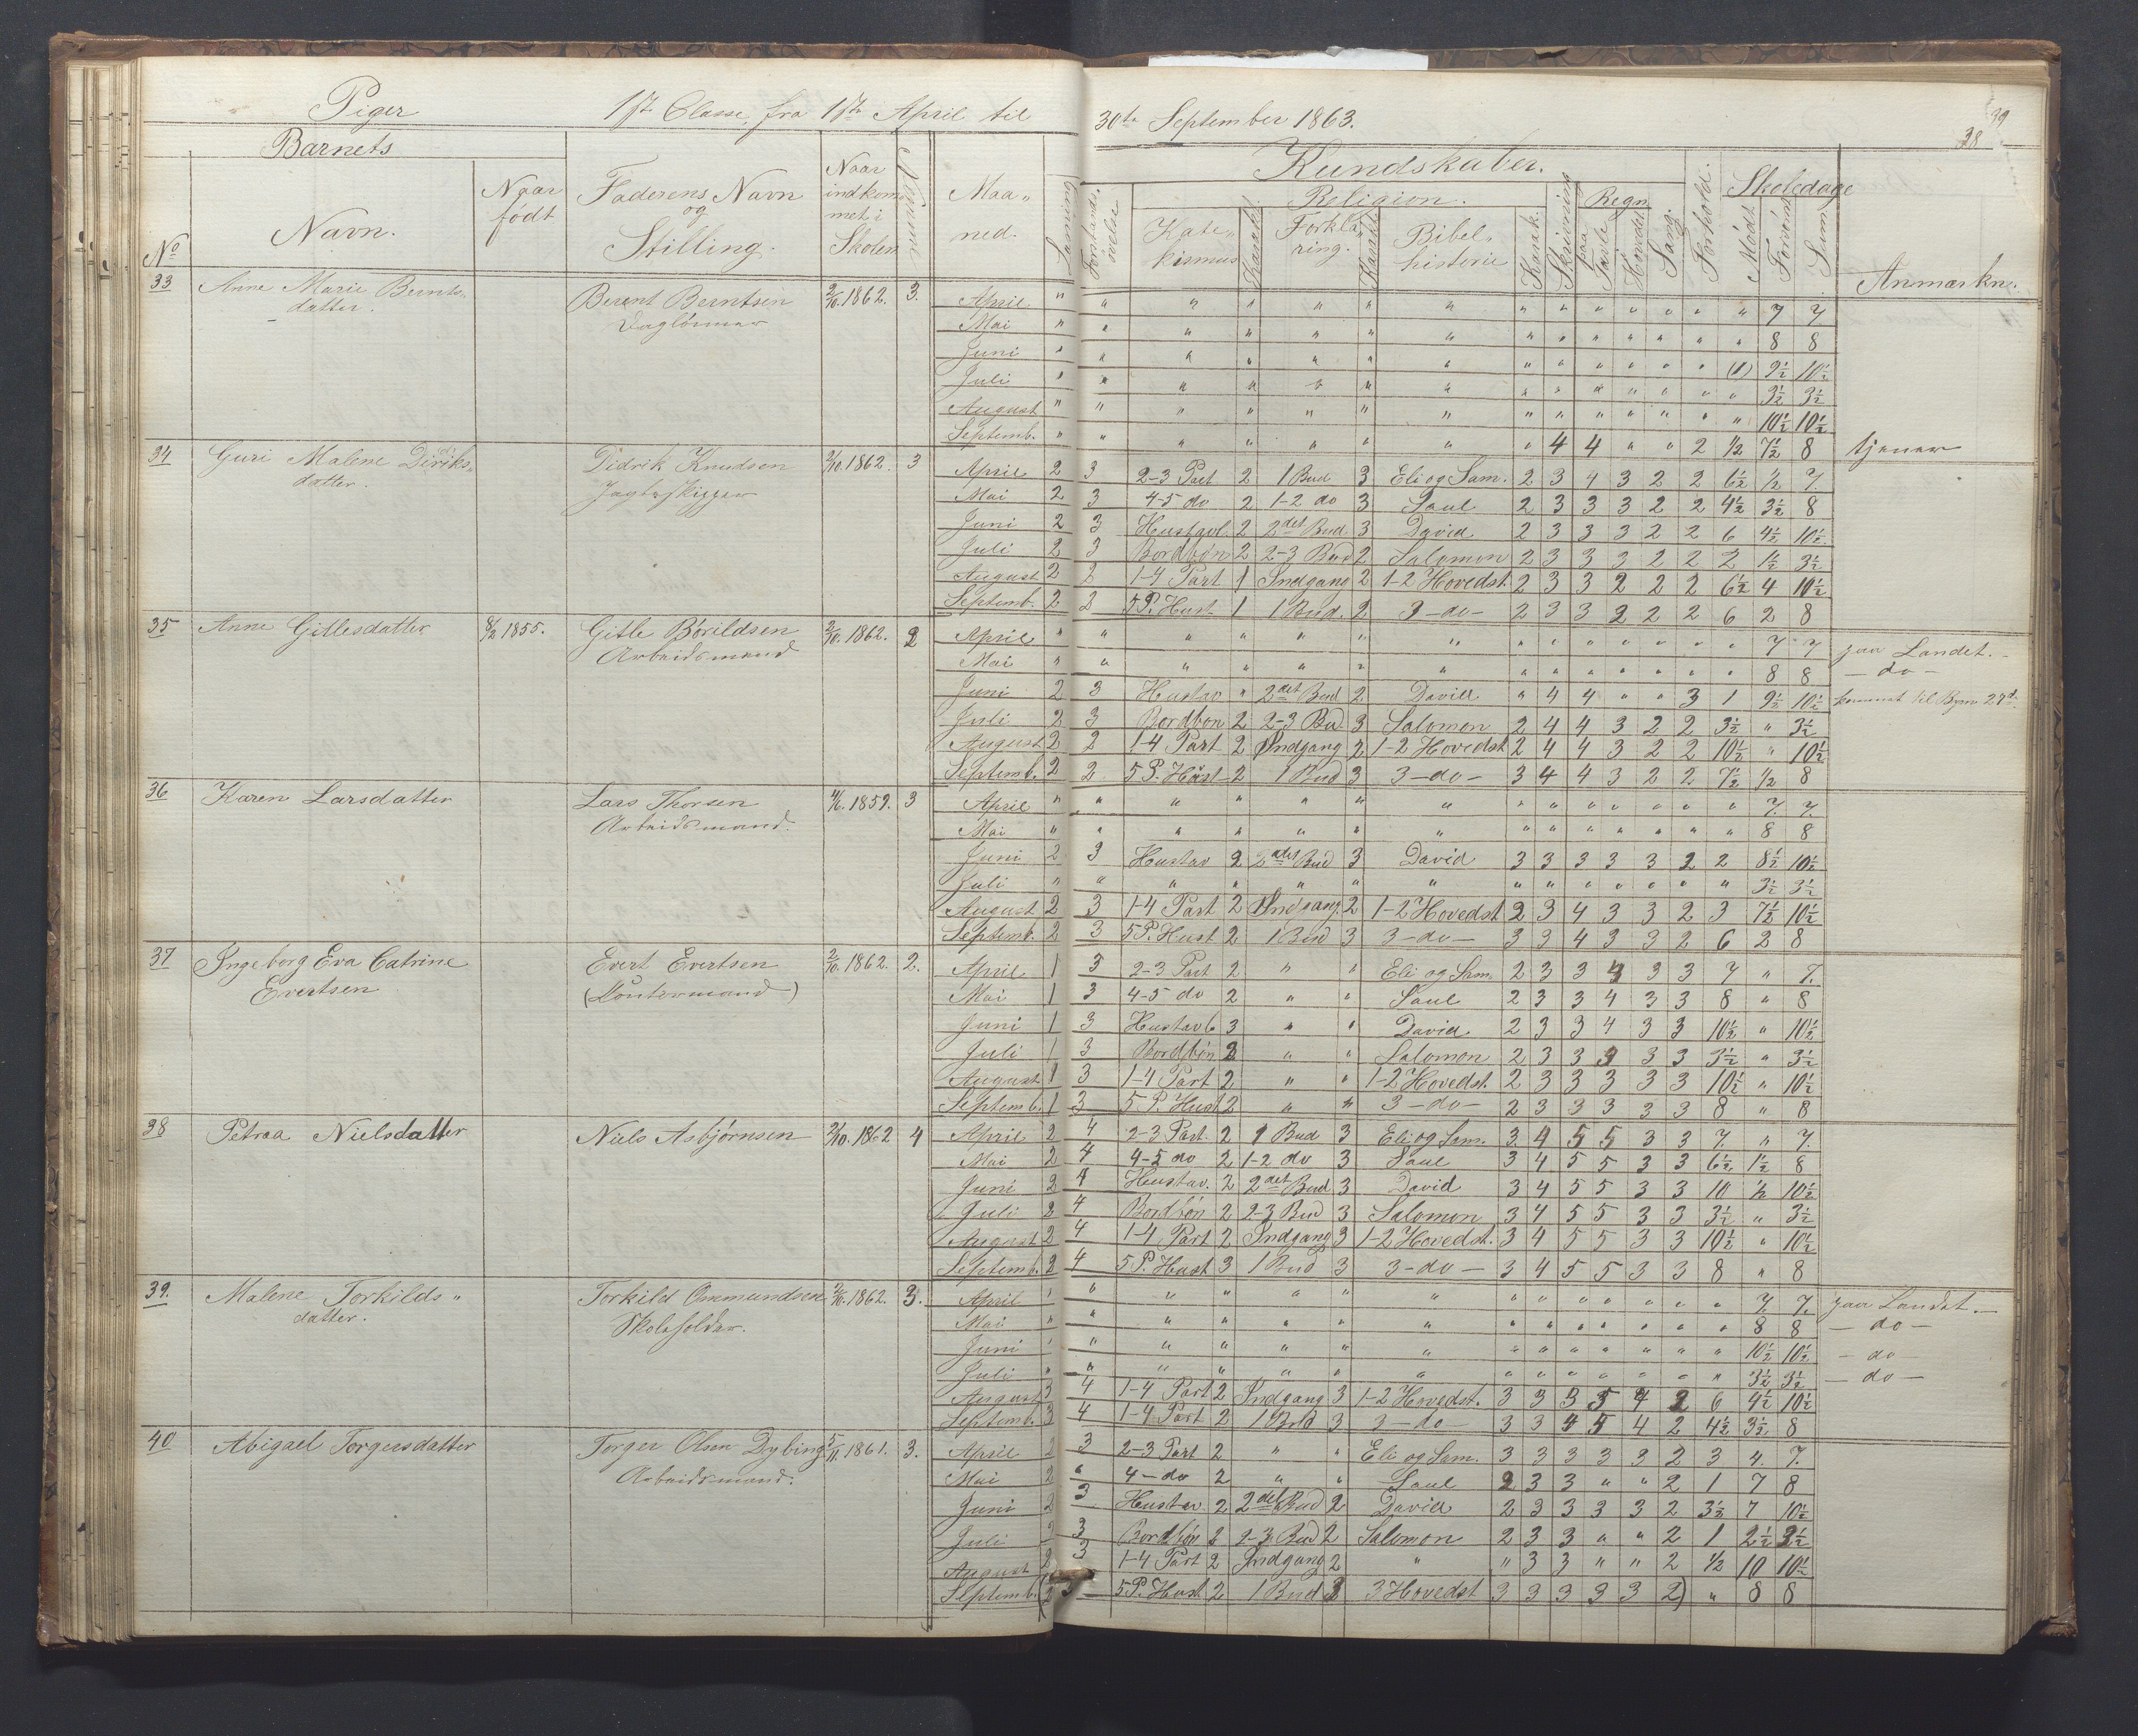 Piger 1ste Classe, fra 1ste April til 30te September 1863.
39
38
Barnets
Kundskaber.
No
Navn.
Naar født
Faderens Navn og Stilling.
Naar indkommet i Skolen
Maaned.
Læsning
Forstandsøvelse
Religion.
Katekismus
Karakt.
Forklaring.
Karakt.
Bibelhistorie
Karak.
Skrivning
Regn.
paa Tavle
Hovedet
Sang.
Forhold.
Skoledage
Mødt
Forsømt
Sum
Anmærkn.
33 Anne Marie Berntsdatter. Berent Berntsen Daglønner 2/10. 1862. 3.
April " " " " " " " " " " " " " " 7 7.
Mai " " " " " " " " " " " " " " 8 8
Juni " " " " " " " " " " " " " (1) 9½ 10½
Juli " " " " " " " " " " " " " " 3½ 3½
August " " " " " " " " " " " " " " 10½ 10½
Septemb. " " " " " " " " 4 4 " " 2 ½ 7½ 8 tjener
34 Guri Malene Diriksdatter. Didrik Knudsen Jagteskipper 2/10. 1862. 3
April 2 3 2-3 Part 2 1 Bud 3 Eli og Sam. 2 3 4 3 2 2 6½ ½ 7.
Mai 2 3 4-5 do 2 1-2 do 3 Saul 2 3 3 3 2 2 4½ 3½ 8
Juni 2 3 Hustavl. 2 2det Bud. 3 David 2 3 3 3 2 2 6 4½ 10½
Juli 2 3 Bordbøn 2 2-3 Bud 2 Salomon 2 3 3 3 2 2 2 1½ 3½
August 2 2 1-4 Part 1 Indgang 2 1-2 Hovedst. 2 3 3 2 2 2 6½ 4 10½
Septemb. 2 2 5 P. Hust 1 1 Bud. 2 3 - do - 2 3 3 2 2 2 6 2 8
35 Anne Gitlesdatter 8/2 1855. Gitle Børildsen Arbeidsmand 2/10. 1862. 2
April " " " " " " " " " " " " " " 7 7 paa Landet. -
Mai " " " " " " " " " " " " " " 8 8 - do -
Juni 2 3 Hustav " 2det Bud 2 David " 4 4 " " 3 1 9½ 10½ kommet til Byen 27de
Juli 2 3 Bordbøn 2 2-3 Bud 3 Salomon 2 4 4 3 2 2 3½ " 3½
August 2 2 1-4 Part 2 Indgang 2 1-2 Hovedst 2 4 4 3 2 2 10½ " 10½
Septemb. 2 2 5 P. Hust 2 1 Bud 3 3 - do - 3 4 4 3 2 2 7½ ½ 8
36 Karen Larsdatter Lars Thorsen Arbeidsmand. 1859. 3
April " " " " " " " " " " " " " " 7. 7.
Mai " " " " " " " " " " " " " " 8 8
Juni 2 3 Hustav 2 2det Bud 3 David 3 3 3 3 3 2 2 8½ 10½
Juli " " " " " " " " " " " " " " 3½ 3½
August 2 3 1-4 Part 2 Indgang. 2 1-2 Hovedst 2 3 4 3 3 2 3 7½ 10½
Septemb. 2 3 5 P. Hust 2 1 Bud 3 3 - do - 3 3 4 3 3 2 6 2 8
37 Ingeborg Eva Catrine Evertsen Evert Evertsen 2/10. 1862. 2.
April 1 3 2-3 Part 2 " " Eli og Sam. 2 3 3 4 3 3 7 " 7.
Mai 1 3 4-5 do 2 " " Saul 2 3 3 4 3 3 8 " 8
Juni 1 3 Hustavl 3 " " David 2 3 3 4 3 3 10½ " 10½
Juli 1 3 Bordbøn 2 " " Salomon 2 3 3 3 3 3 3½ " 3½
August 1 3 1-4 Part 2 " " 1-2 Hovedst. 2 3 3 3 3 3 10½ " 10½
Septemb. 1 3 5 P. Hust 2 " " 3 - do - 2 3 3 3 3 3 8 " 8
38 Petrea Nielsdatter Niels Asbjørnsen 2/10. 1862 4
April 2 4 2-3 Part. 2 1 Bud 3 Eli og Sam. 3 4 5 5 3 3 7. " 7.
Mai 2 4 4-5 do 2 1-2 do 3 Saul 3 4 5 5 3 3 6½ 1½ 8
Juni 2 4 Hustav. 2 2det Bud 3 David 3 4 5 5 3 3 10 ½ 10½
Juli 2 4 Bordbøn 2 2-3 Bud 3 Salomon 3 4 5 5 3 3 3½ " 3½
August 2 4 1-4 Part 2 Indgang 3 1-2 Hovedst. 3 4 5 5 3 3 10½ " 10½
Septemb. 2 4 5 P. Hust 3 1 Bud 3 3 - do - 3 4 5 5 3 3 8 " 8
39. Malene Torkildsdatter. Torkild Ommundsen Skoleholder. 2/10. 1862. 3.
April " " " " " " " " " " " " " " 7. 7. paa Landet. -
Mai " " " " " " " " " " " " " " 8 8 - do -
Juni " " " " " " " " " " " " " " 10½ 10½ - do
Juli " " " " " " " " " " " " " " 3½ 3½ - do -
August 3 4 1-4 Part 2 Indgang 3 1-2 Hovedst. 3 3 3 5 4 2 6 4½ 10½
Septemb. 3 4 1-4 Part 2 1 Bud 3 3 - do - 3 3 4 5 4 2 4½ 3½ 8
40 Abigael Torgersdatter Torger Olsen Dybing Arbeidsmand. 5/11. 1861. 3.
April 2 3 2-3 Part 2 " " Eli og Sam. 3 3 3 3 3 2 3 4. 7.
Mai 2 " 4 - do 2 " " Saul 2 3 3 " " 2 1 7 8
Juni 2 3 Hustav. 2 2det Bud 2 David 2 3 3 3 3 2 3½ 7 10½
Juli 2 3 Bordbøn 2 2-3 Bud 2 Salomon 2 3 3 " " 2 1 2½ 3½
August 2 3 1-4 Part 2 Indgang 2 " " 3 3 " " 2 ½ 10 10½
Septemb. (2 5 P. Hust 2 1 Bud 3 3 Hovedst 3 3 3 3 3 2) " 8 8